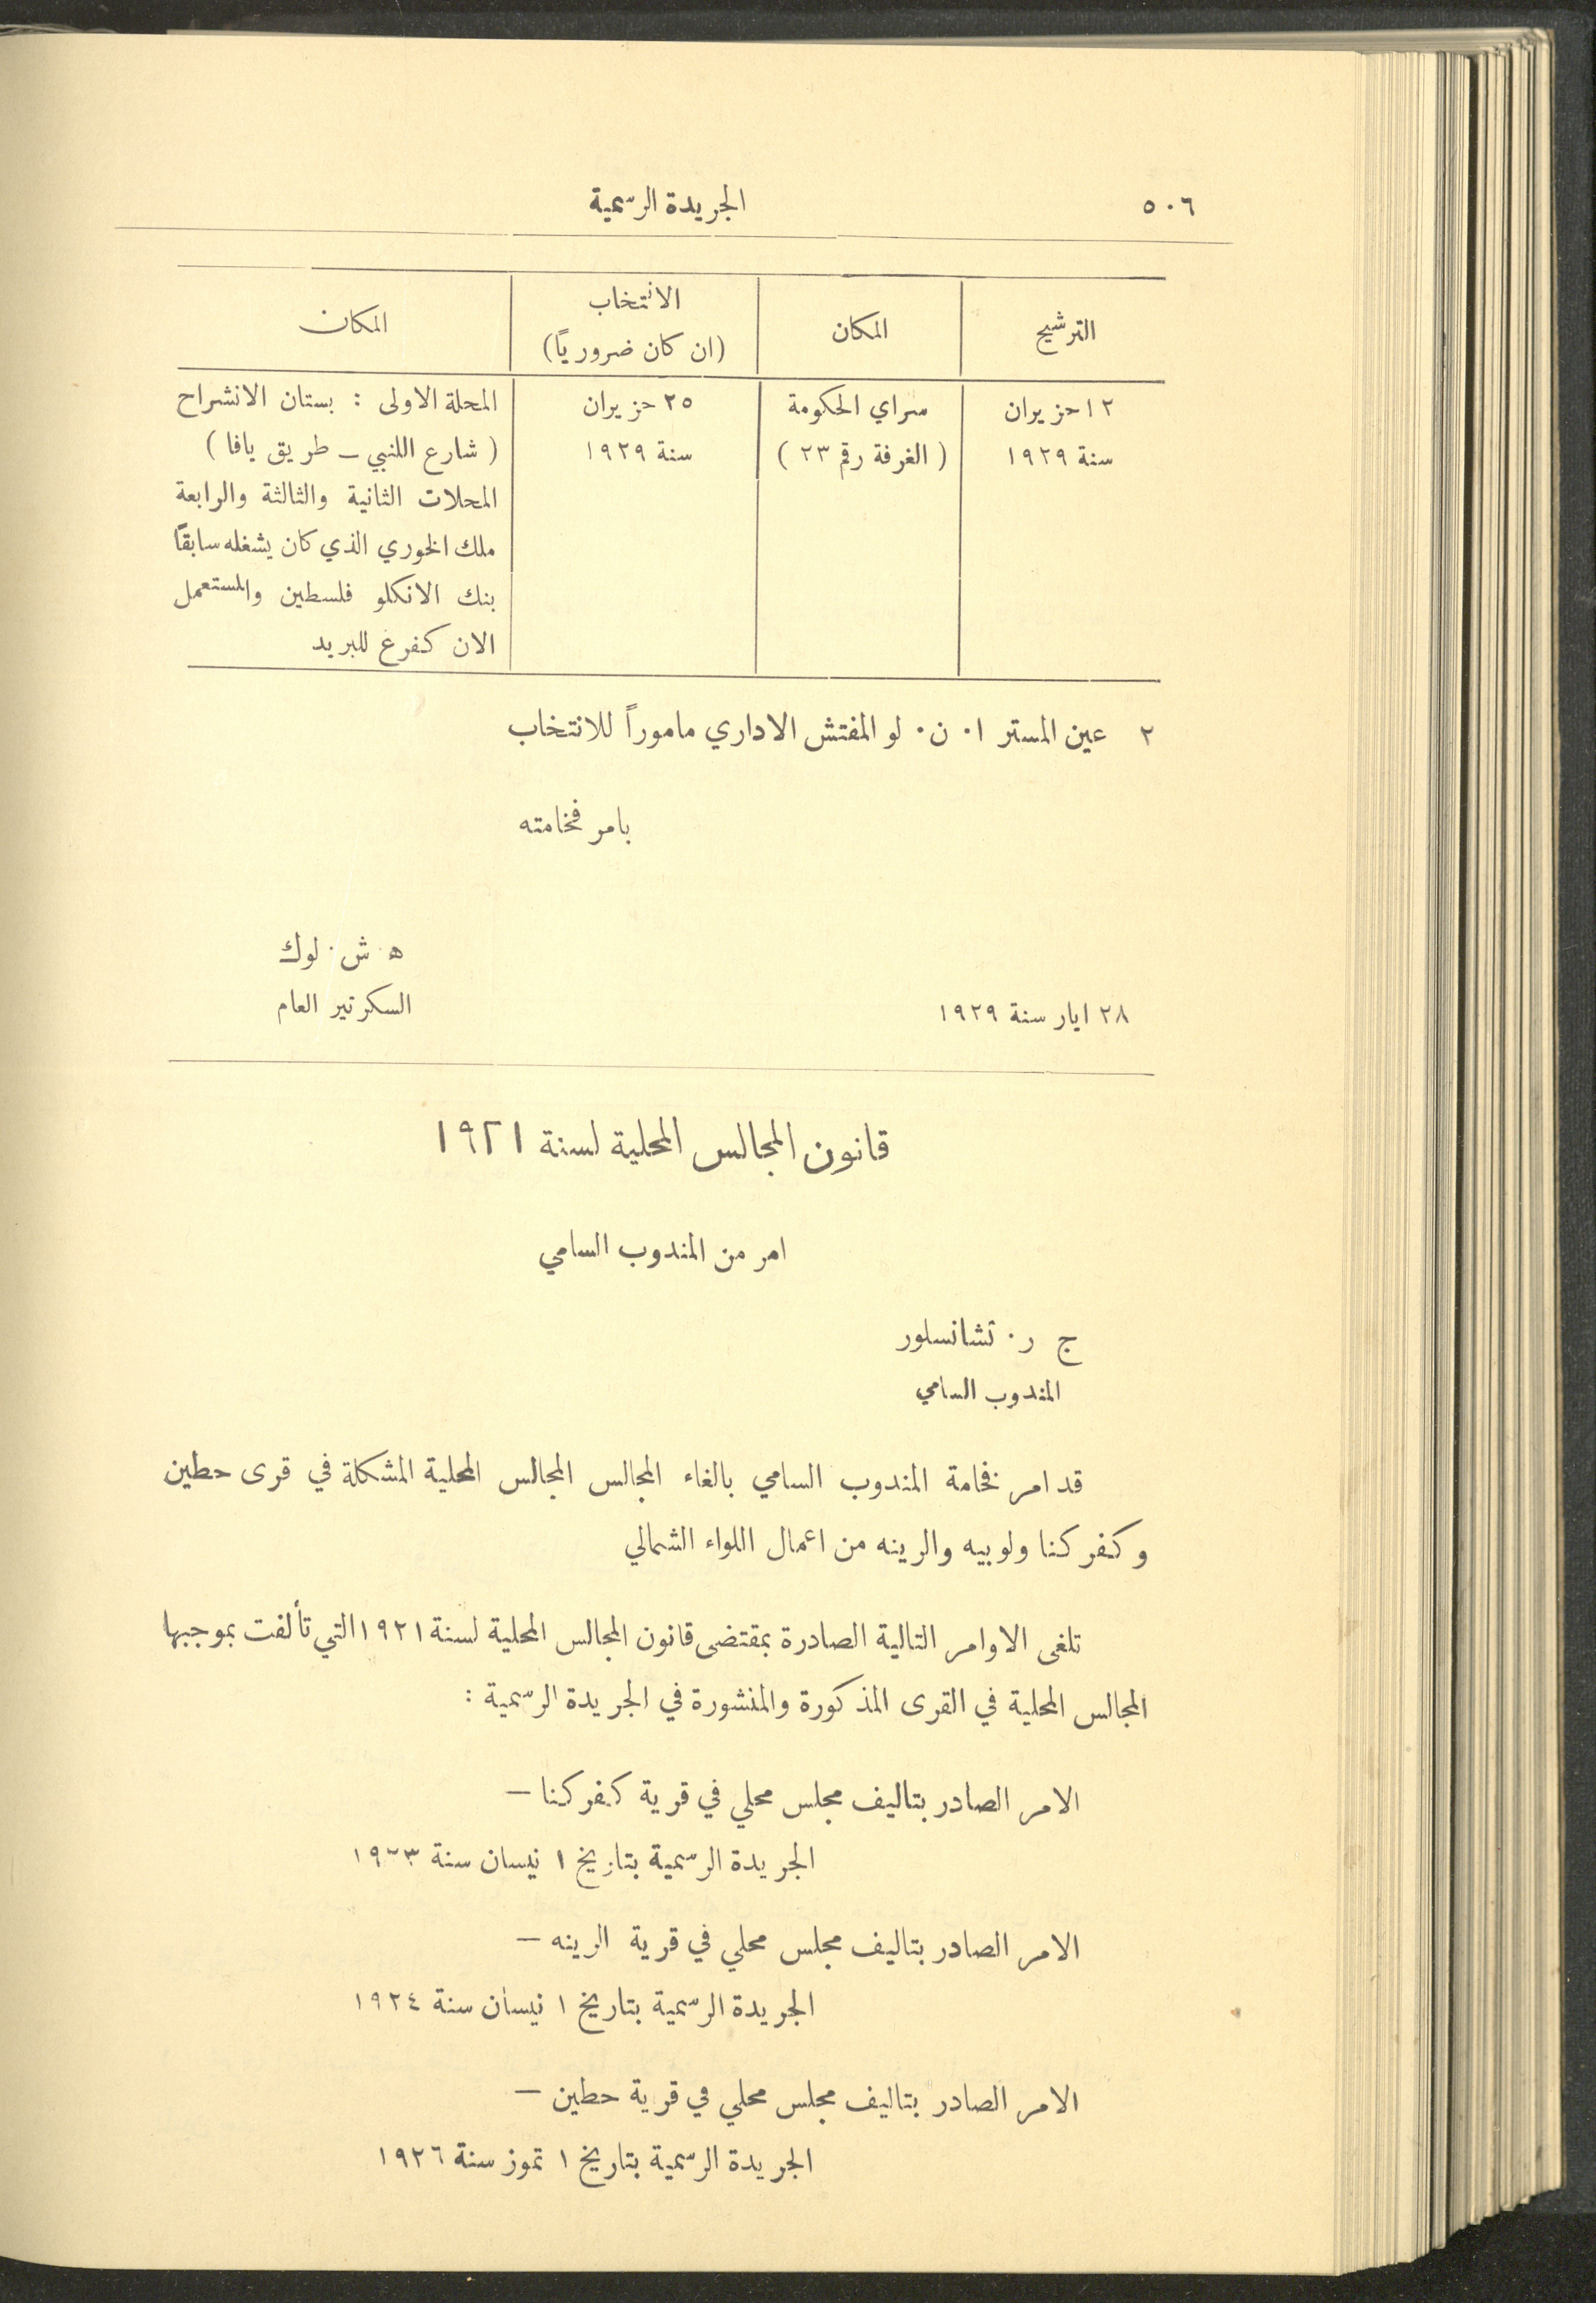 ٥٠٦
الجريدة الرسمية
الترشيح
المكان
الانتخاب
(ان كان ضرورياً)
المكان
١٢ حزيران
سنة ١٩٢٩
سراي الحكومة
( الغرفة رقم ٢٣ )
٢٥ حزيران
سنة ١٩٢٩
المحلة الاولى : بستان الانشراح
( شارع اللنبي – طريق يافا )
المحلات الثانية والثالثة والرابعة
ملك الخوري الذي كان يشغله سابقاً
بنك الانكلو فلسطين والمستعمل
الان كفرع للبريد
٢ عين المستر ا٠ ن٠ لو المفتش الاداري ماموراً للانتخاب
بامر فخامته
ه٠ ش٠ لوك
السكرتير العام
٢٨ ايار سنة ١٩٢٩
قانون المجالس المحلية لسنة ١٩٢١
امر من المندوب السامي
ج ر٠ تشانسلور
المندوب السامي
قد امر فخامة المندوب السامي بالغاء المجالس المجالس المحلية المشكلة في قرى حطين
وكفركنا ولوبيه والرينه من اعمال اللواء الشمالي
تلغى الاوامر التالية الصادرة بمقتضى قانون المجالس المحلية لسنة ١٩٢١ التي تألفت بموجبها
المجالس المحلية في القرى المذكورة والمنشورة في الجريدة الرسمية :
الامر الصادر بتاليف مجلس محلي في قرية كفركنا –
الجريدة الرسمية بتاريخ ١ نيسان سنة ١٩٢٣
الامر الصادر بتاليف مجلس محلي في قرية الرينه –
الجريدة الرسمية بتاريخ ١ نيسان سنة ١٩٢٤
الامر الصادر بتاليف مجلس محلي في قرية حطين –
الجريدة الرسمية بتاريخ ١ تموز سنة ١٩٢٦